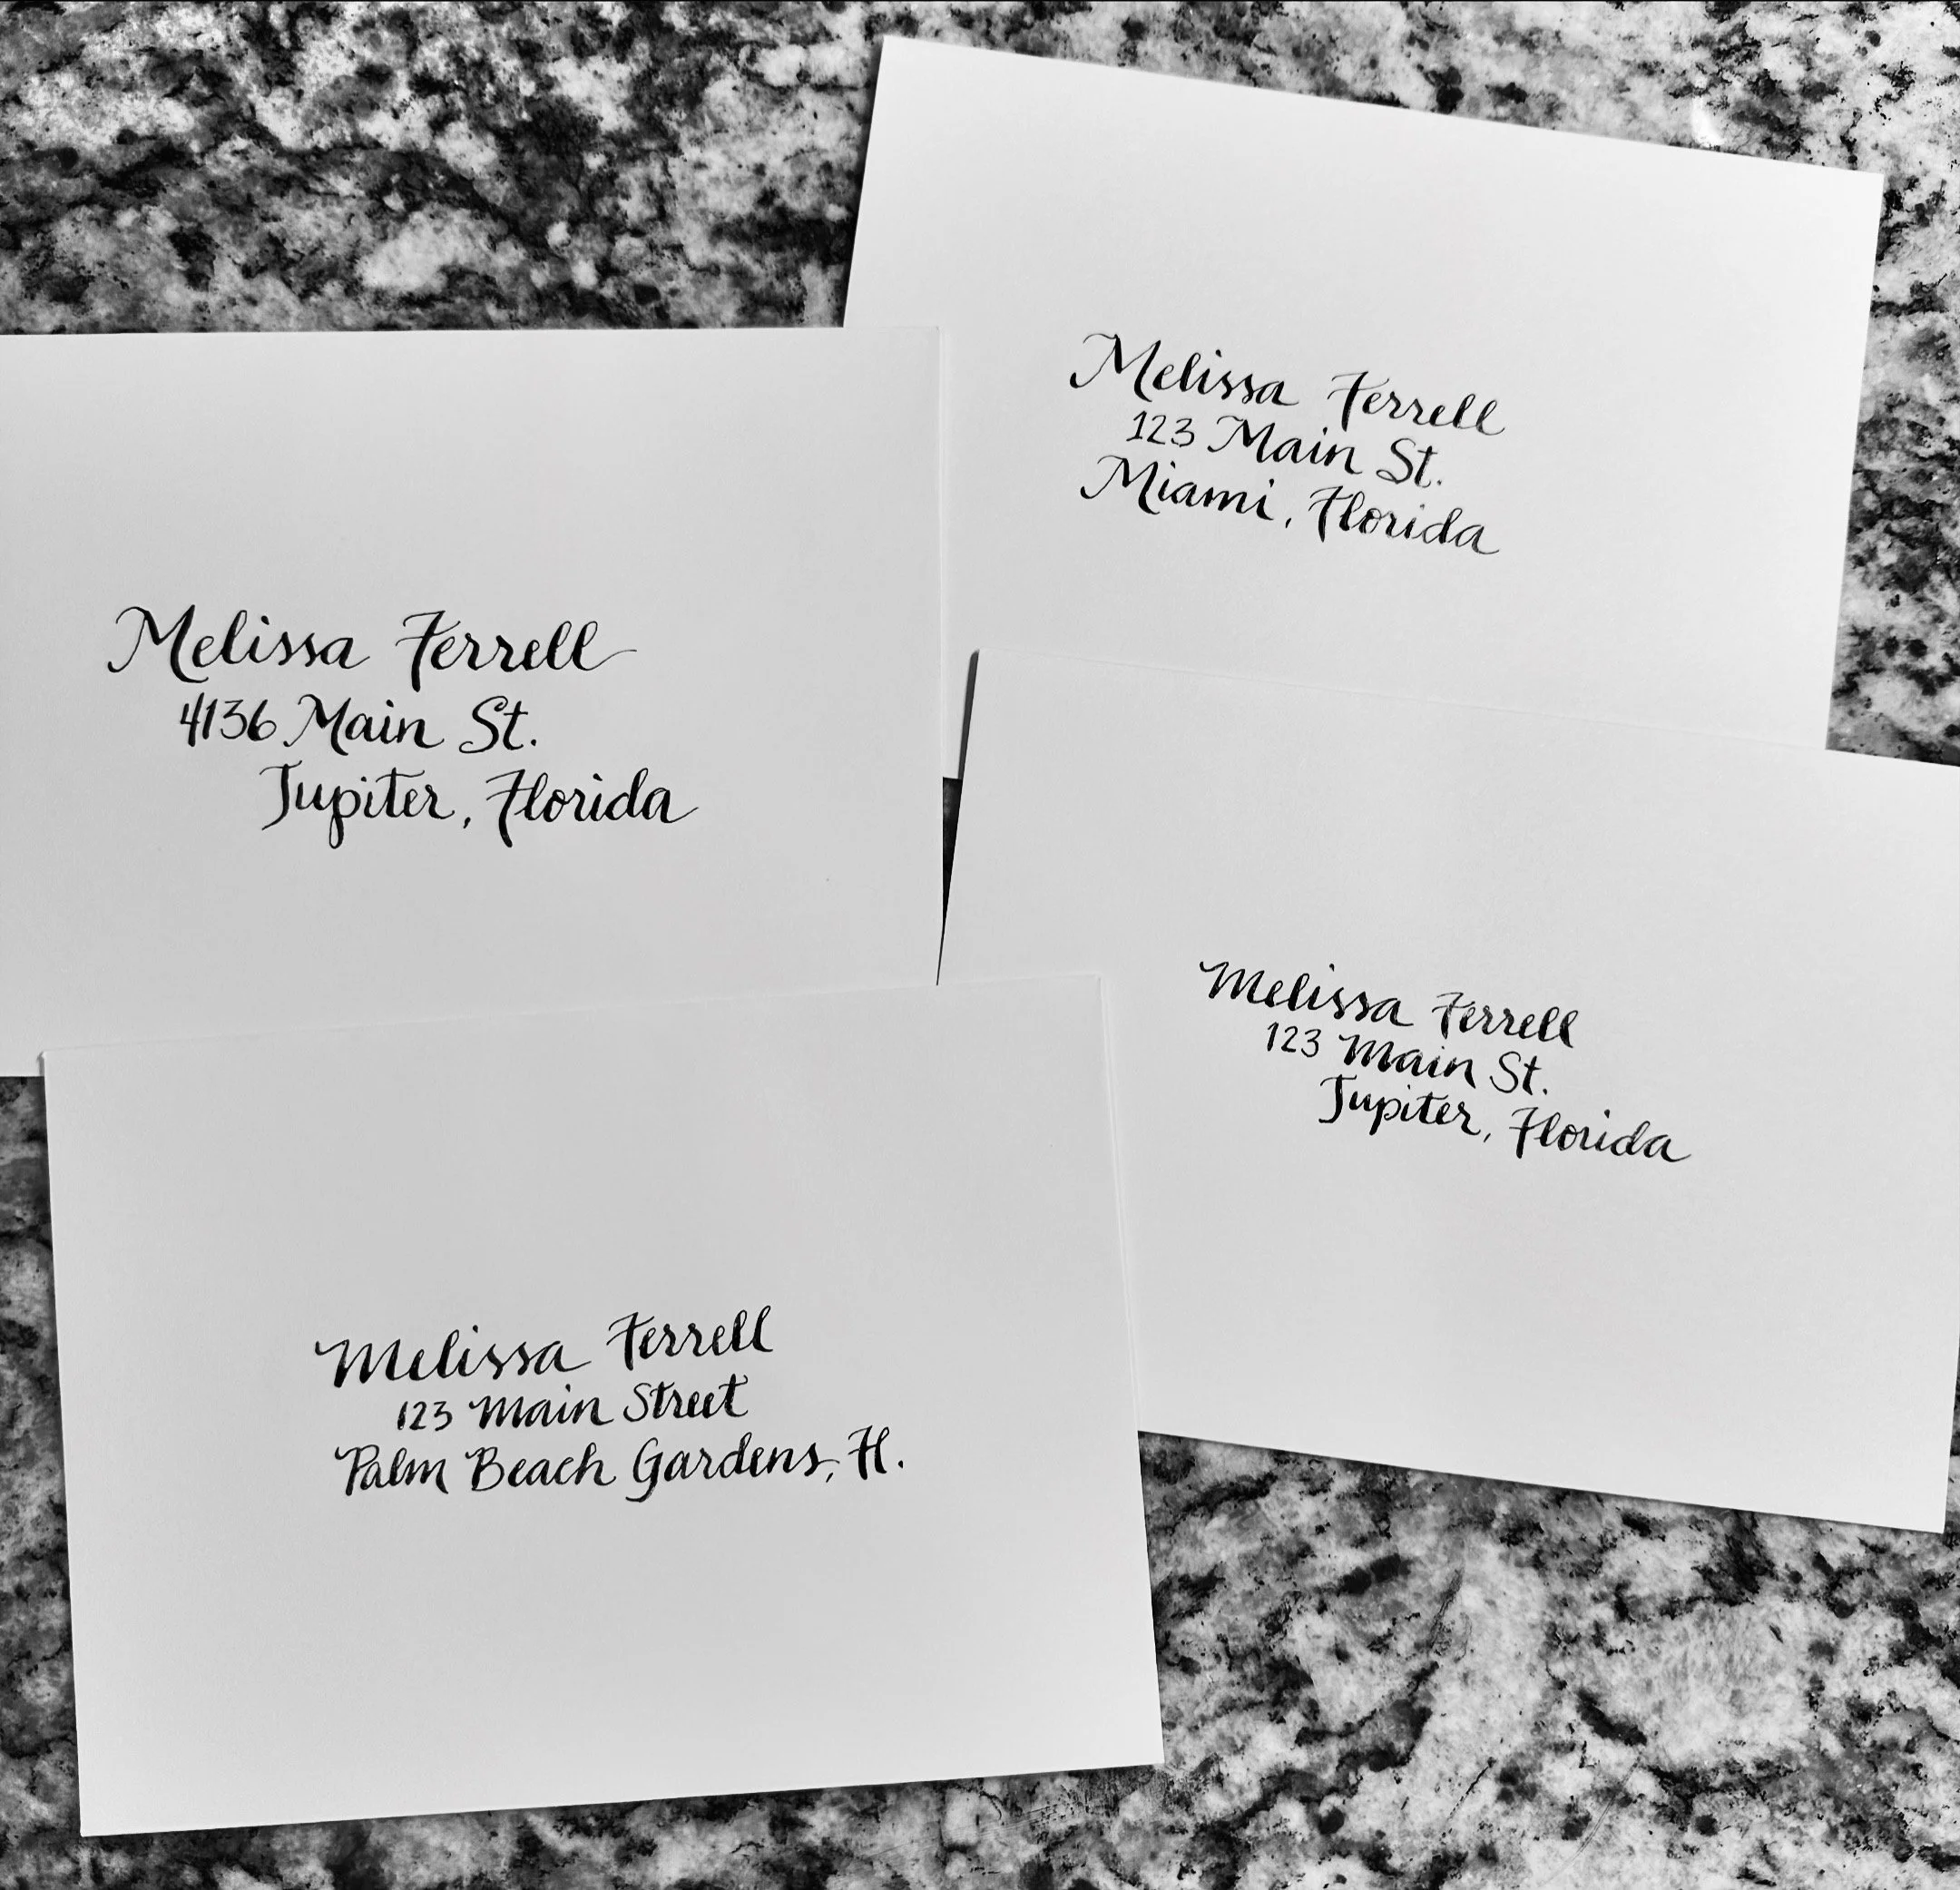 Melissa Ferrell
123 Main St.
Miami, Florida
Melissa Ferrell
4136 Main St.
Jupiter, Florida
Melissa Ferrell
123 Main St.
Jupiter, Florida
Melissa Ferrell
123 Main Street
Palm Beach Gardens, Fl.